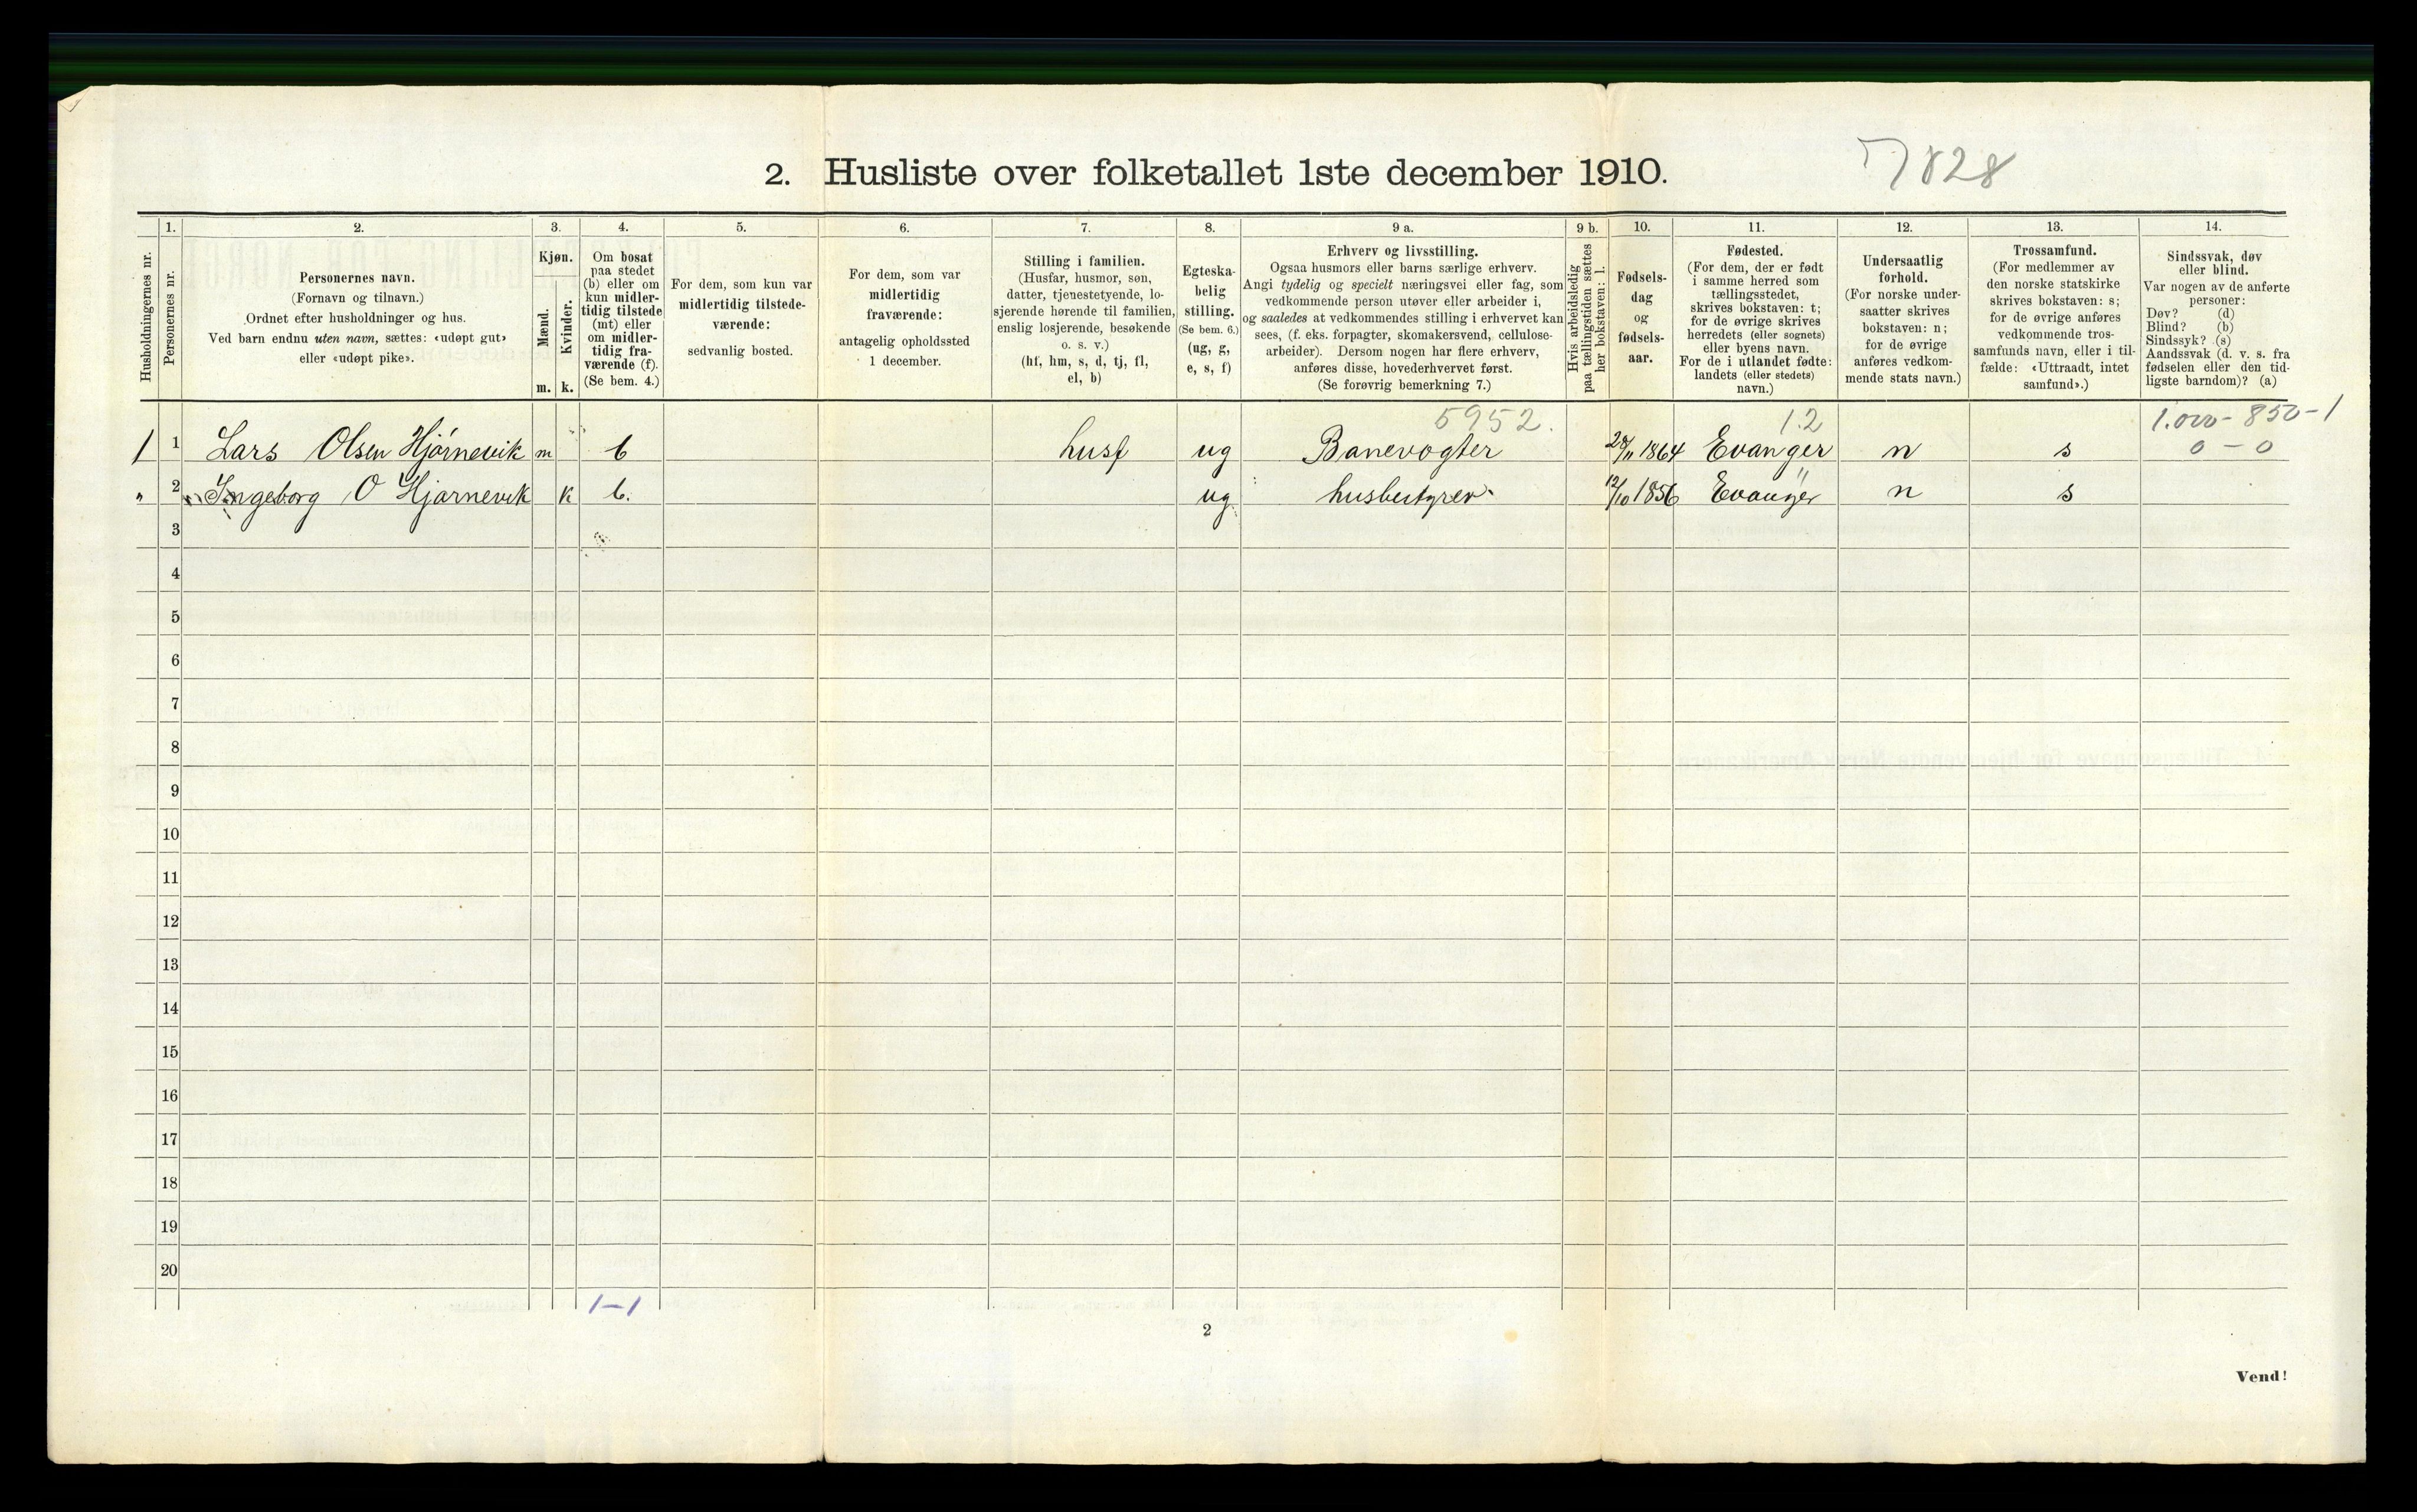 2. Husliste over folketallet 1ste december 1910.
7828
1.
2.
3.
4.
5.
6.
7.
8.
9 a.
9 b.
10.
11.
12.
13.
14.
Husholdningernes nr.
Personernes nr.
Personernes navn.
(Fornavn og tilnavn.)
Ordnet efter husholdninger og hus.
Ved barn endnu uten navn, sættes: «udøpt gut»
eller «udøpt pike».
Kjøn.
Mænd.
Kvinder.
m. k.
Om bosat
paa stedet
(b) eller om
kun midler-
tidig tilstede
(mt) eller
om midler-
tidig fra-
værende (f).
(Se bem. 4.)
For dem, som kun var
midlertidig tilstede-
værende:
sedvanlig bosted.
For dem, som var
midlertidig
fraværende:
antagelig opholdssted
1 december.
Stilling i familien.
(Husfar, husmor, søn,
datter, tjenestetyende, lo-
sjerende hørende til familien,
enslig losjerende, besøkende
o. s. v.)
(hf, hm, s, d, tj, fl,
el, b)
Egteska-
belig
stilling.
(Se bem. 6.)
(ug, g,
e, s, f)
Erhverv og livsstilling.
Ogsaa husmors eller barns særlige erhverv.
Angi tydelig og specielt næringsvei eller fag, som
vedkommende person utøver eller arbeider i,
og saaledes at vedkommendes stilling i erhvervet kan
sees, (f. eks. forpagter, skomakersvend, cellulose-
arbeider). Dersom nogen har flere erhverv,
anføres disse, hovederhvervet først.
(Se forøvrig bemerkning 7.)
Hvis arbeidsledig
paa tællingstiden sættes
her bokstaven: l.
Fødsels-
dag
og
fødsels-
aar.
Fødested.
(For dem, der er født
i samme herred som
tællingsstedet,
skrives bokstaven: t;
for de øvrige skrives
herredets (eller sognets)
eller byens navn.
For de i utlandet fødte:
landets (eller stedets)
navn.)
Undersaatlig
forhold.
(For norske under-
saatter skrives
bokstaven: n;
for de øvrige
anføres vedkom-
mende stats navn.)
Trossamfund.
(For medlemmer av
den norske statskirke
skrives bokstaven: s;
for de øvrige anføres
vedkommende tros-
samfunds navn, eller i til-
fælde: «Uttraadt, intet
samfund».)
Sindssvak, døv
eller blind.
Var nogen av de anførte
personer:
Døv? (d)
Blind? (b)
Sindssyk? (s)
Aandssvak (d. v. s. fra
fødselen eller den tid-
ligste barndom)? (a)
5952. 12 1.000 - 850 - 1
1 1 Lars Olsen Hjørnevik m b husf ug Banevogter 1864 Evanger n s 0 - 0
" 2 Ingeborg O Hjørnevik k b. ug husbestyrer 12/10 1856 Evanger n s
3
4
5
6
7
8
9
10
11
12
13
14
15
16
17
18
19
20
1-1
2
Vend!